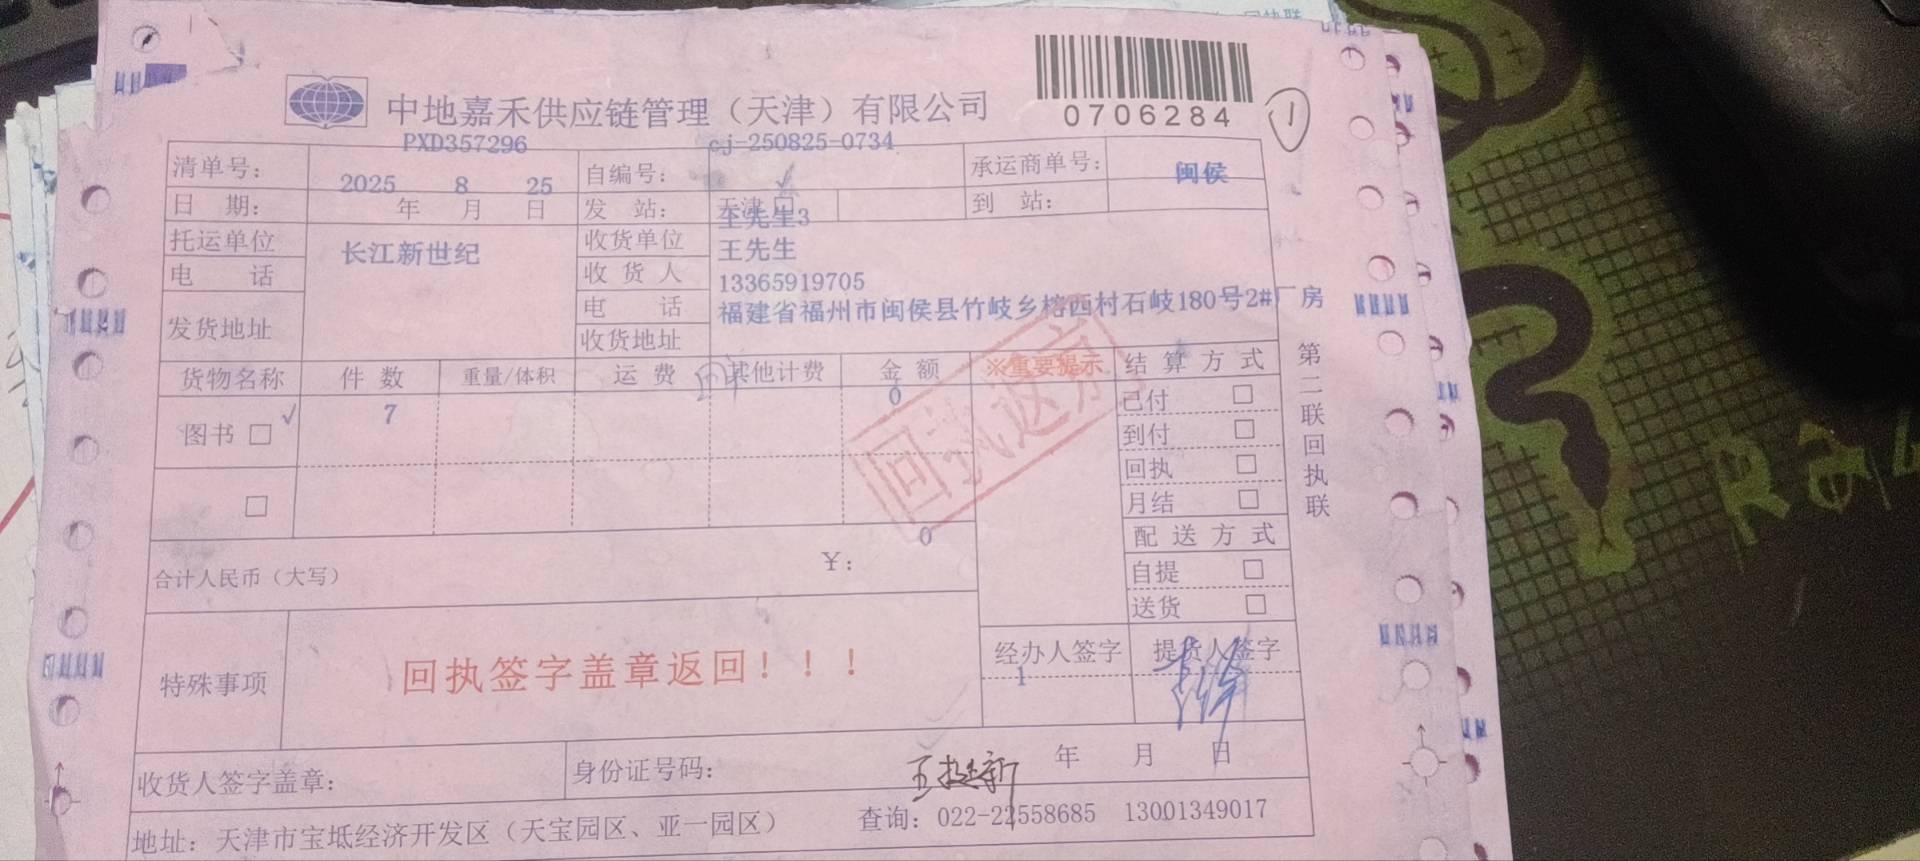 中地嘉禾供应链管理（天津）有限公司
0706284
1
PXD357296 cj-250825-0734
清单号： 自编号： 承运商单号： 闽侯
2025 8 25
日 期： 年 月 日 发 站： 天津 到 站：
王先生3
托运单位 长江新世纪 收货单位 王先生
电 话 收 货 人 13365919705
发货地址 电 话 福建省福州市闽侯县竹岐乡榕西村石岐180号2#厂房
收货地址
货物名称 件 数 重量/体积 运 费 其他计费 金 额 ※重要提示 结 算 方 式
图书 √ 7 0 已付
到付
回执
月结
回执返京
配 送 方 式
自提
送货
第二联回执联
合计人民币（大写） ￥： 0
特殊事项 回执签字盖章返回！！！
经办人签字 提货人签字
1
收货人签字盖章： 身份证号码： 年 月 日
地址：天津市宝坻经济开发区（天宝园区、亚一园区） 查询：022-22558685 13001349017